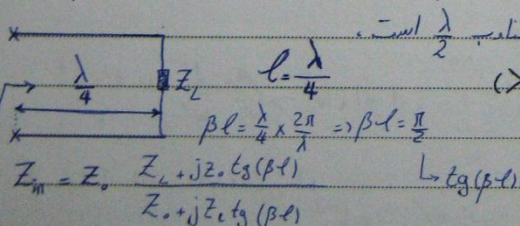 λ/2 است.
λ/4 Z_L l = λ/4
βl = λ/4 × 2π/λ ⇒ βl = π/2
Z_in = Z₀ (Z_L + jZ₀ tg(βl)) / (Z₀ + jZ_L tg(βl)) ↳ tg(βl)